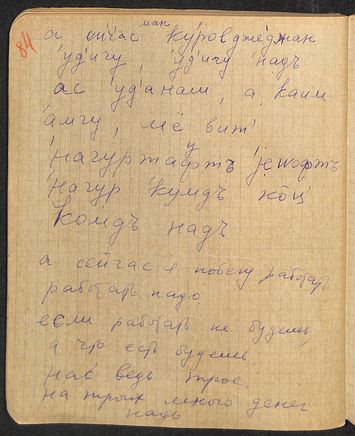 84
ман
а си́час куровджеджан
уд'ичу, уд'ичу надъ
ас уд'анаш, а каим
амгу, ме вит'
начур кумдъ кӧц
комдъ надъ
а сейчас я побегу работать
работать надо
если работать не будешь
а что есть будешь
нас ведь трое,
на троих много денег
надь